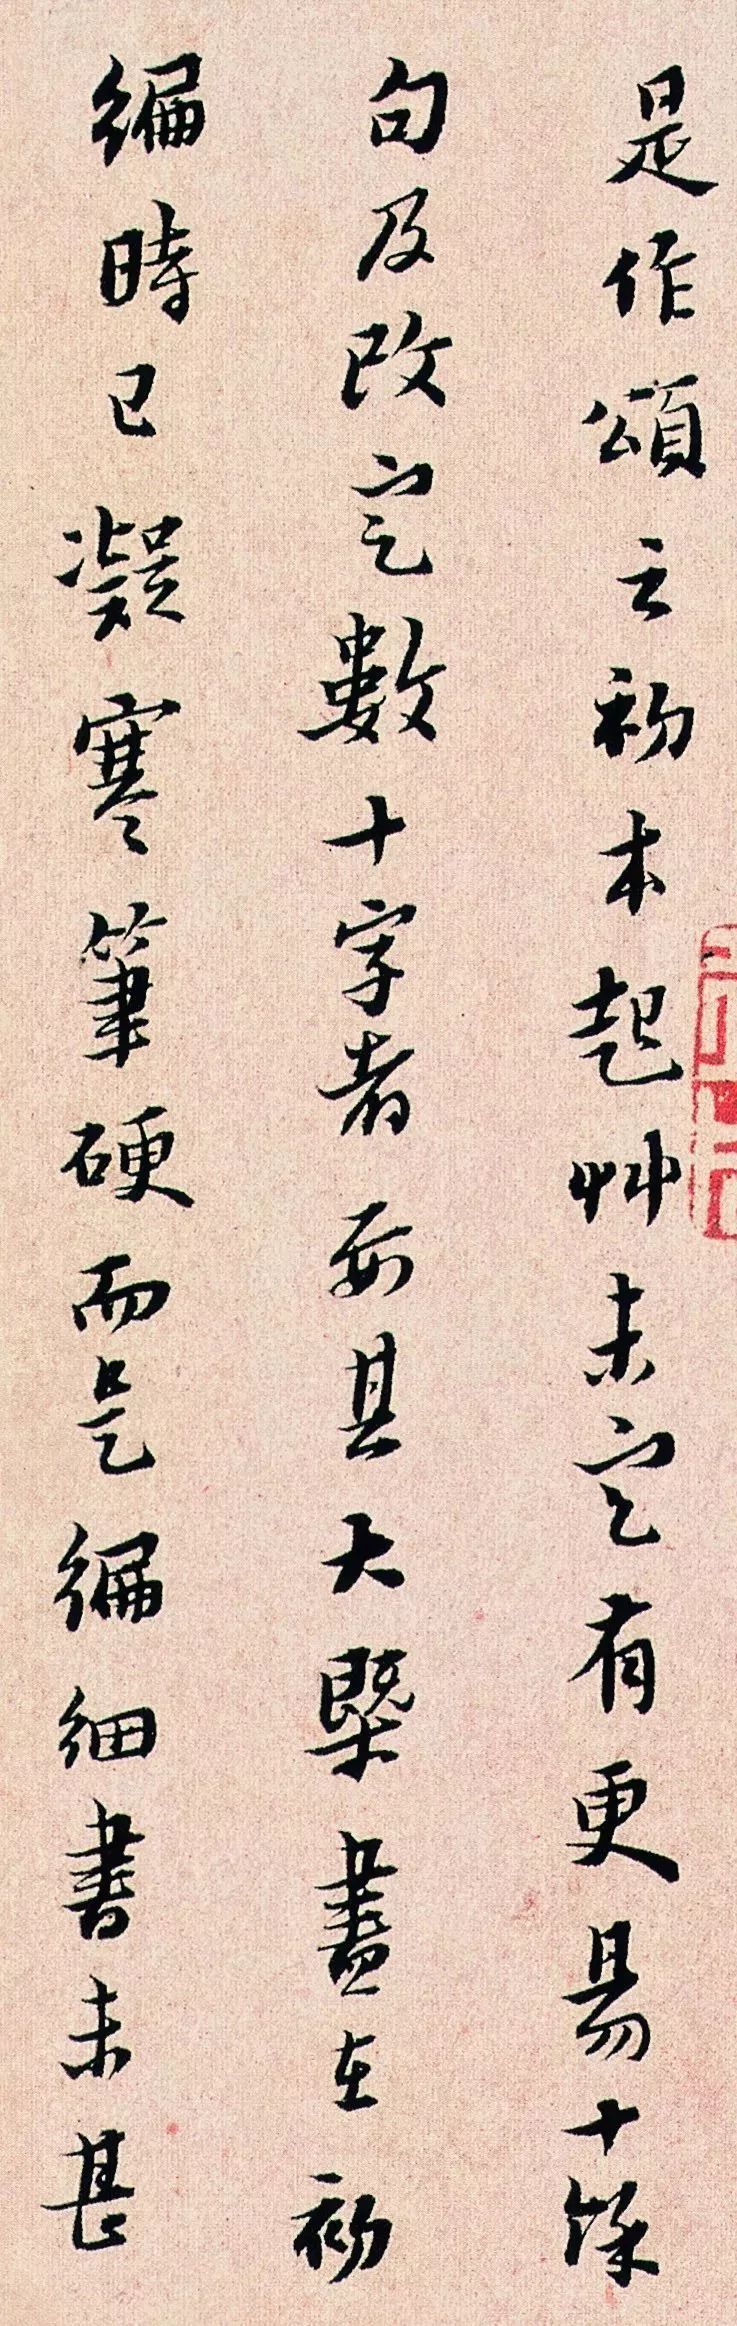 是作頌之初本起艸未定有更易十餘
句及改定數十字者要其大槩盡在初
編時已凝寒筆硬而是編細書未甚